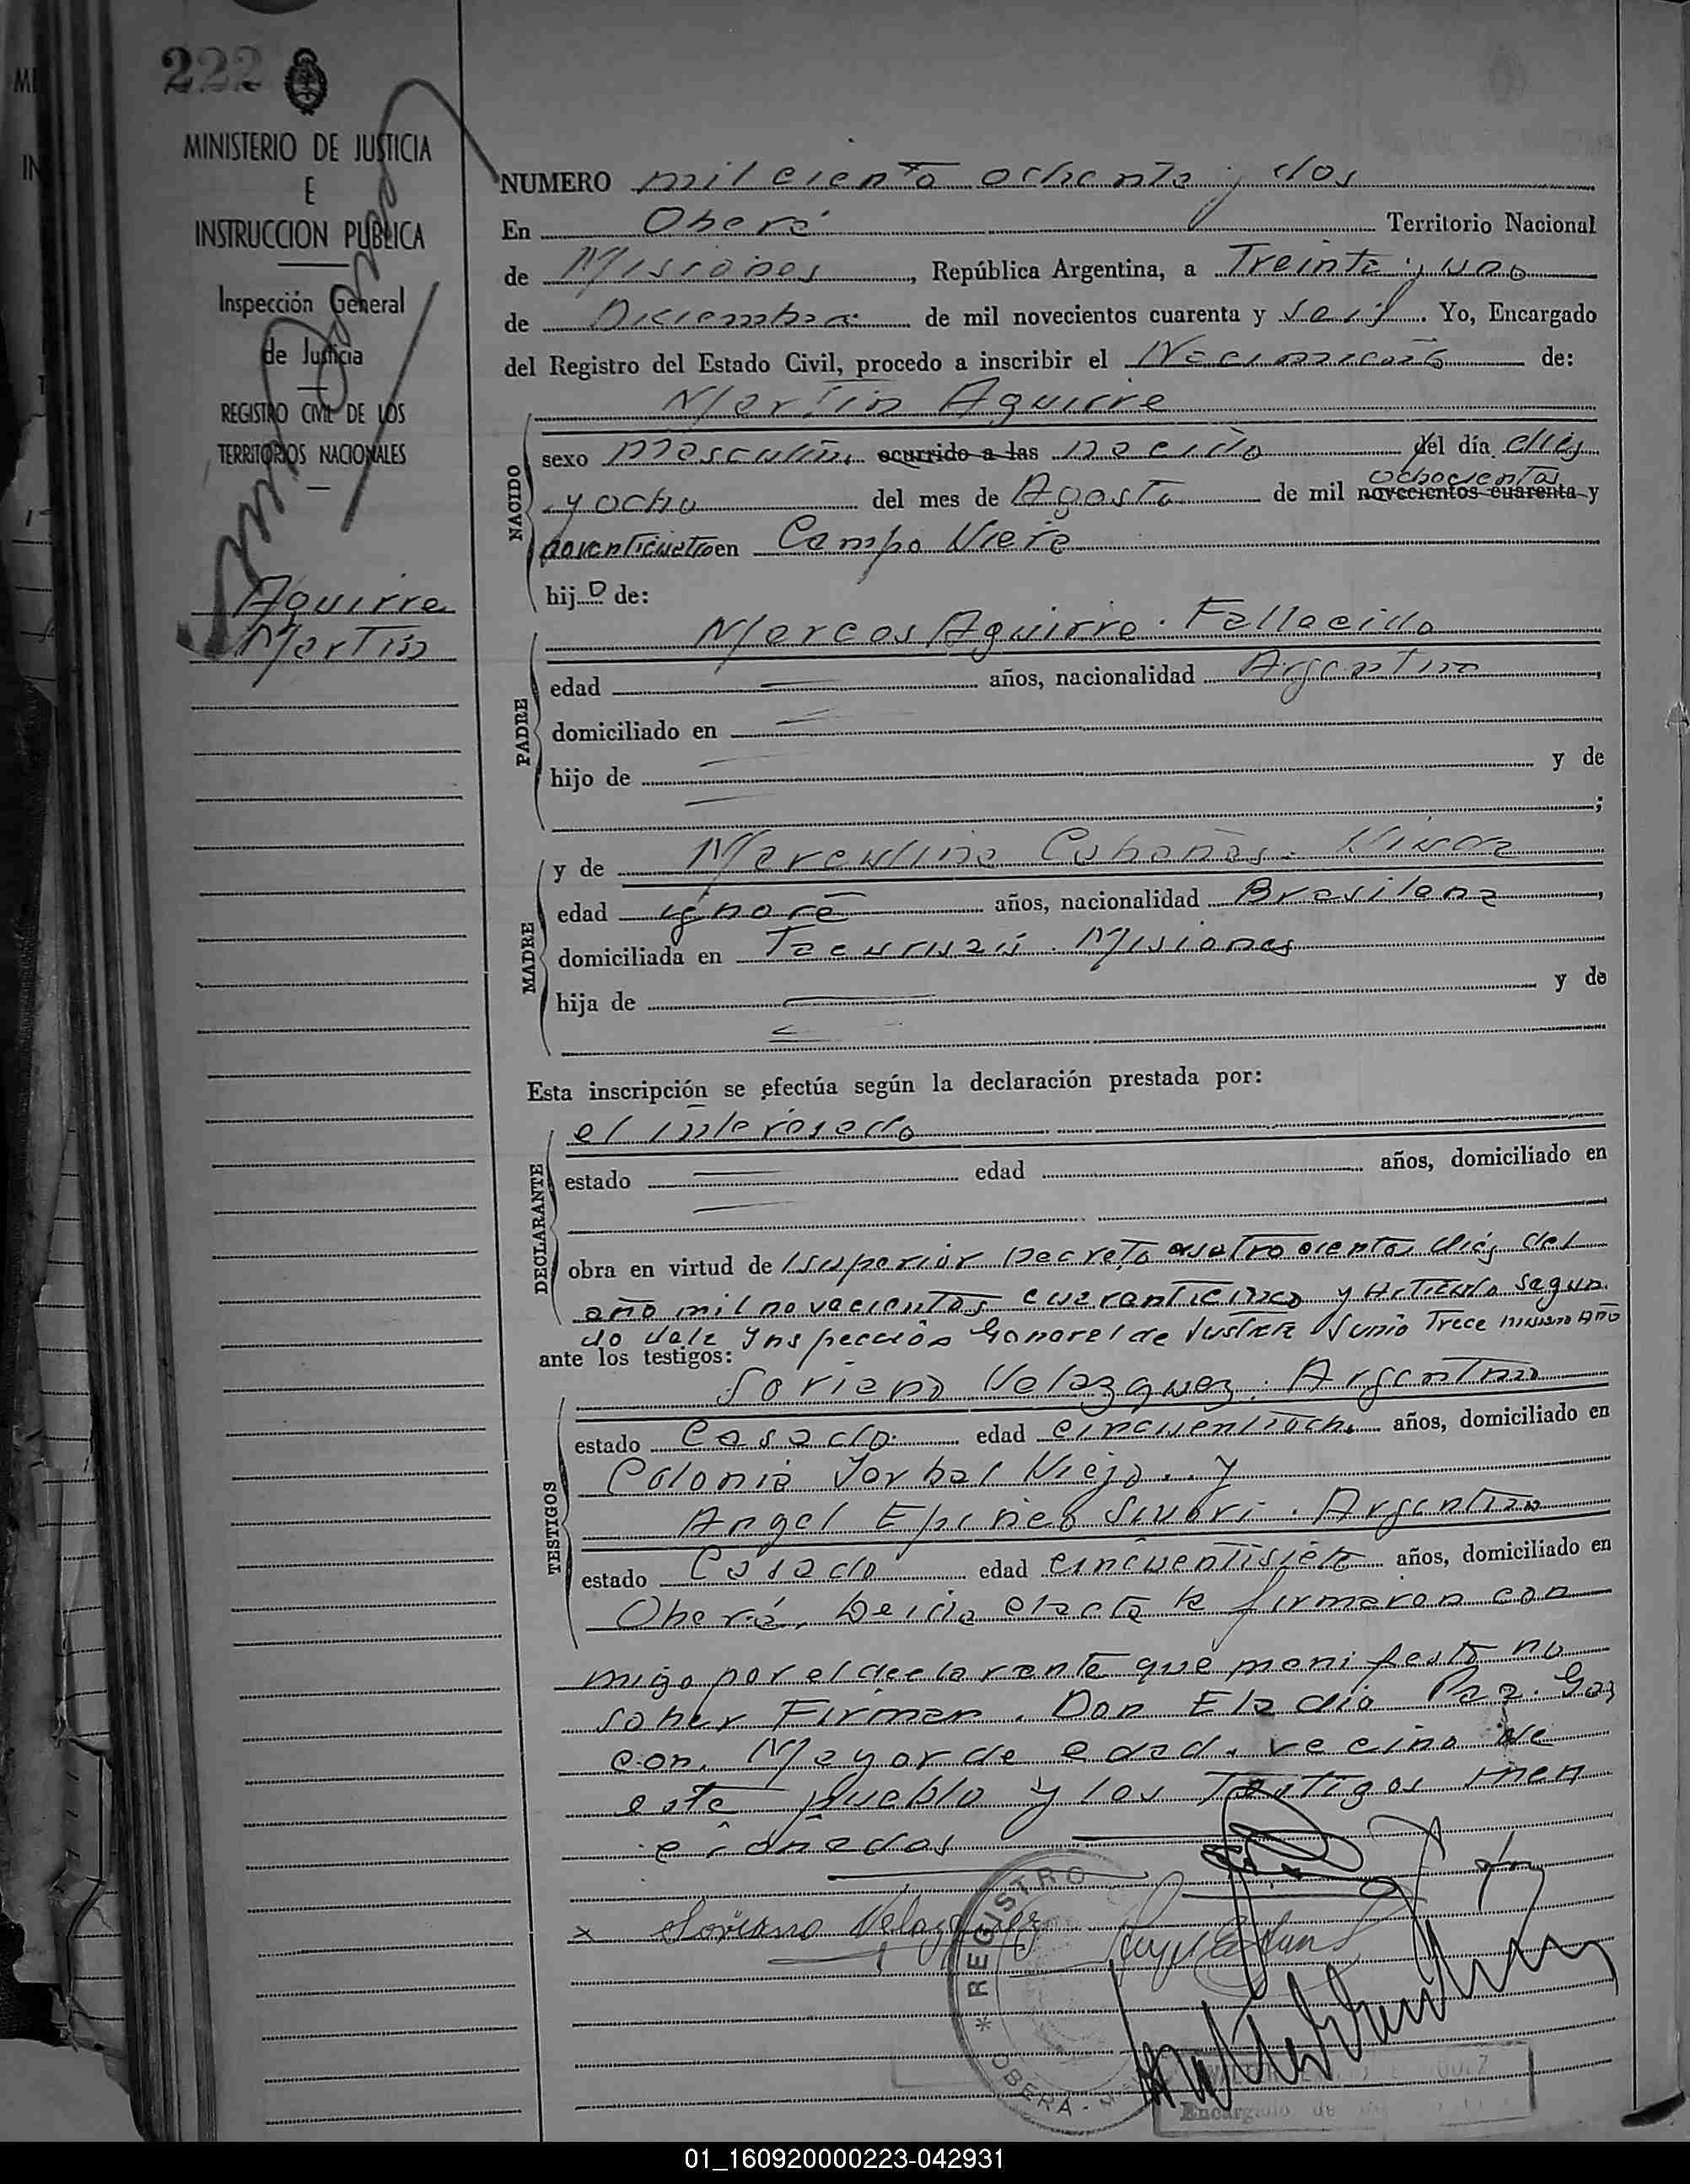 222
MINISTERIO DE JUSTICIA
E
INSTRUCCION PUBLICA
Inspección General
de Justicia
REGISTRO CIVIL DE LOS
TERRITORIOS NACIONALES
Aguirre
Martín
NUMERO mil ciento ochenta y dos
En Oberá Territorio Nacional
de Misiones, República Argentina, a Treinta y uno
de Diciembre de mil novecientos cuarenta y seis. Yo, Encargado
del Registro del Estado Civil, procedo a inscribir el Nacimiento de:
Martin Aguirre
NACIDO
sexo masculino ocurrido a las nacido del día dies
ochocientos
y ocho del mes de Agosto de mil novecientos cuarenta y
noventicuatro en Campo Viera
hijo de:
PADRE
Marcos Aguirre. Fallecido
edad años, nacionalidad Argentino
domiciliado en
hijo de y de
;
MADRE
y de Marculina Cabañas. Viuda
edad ignora años, nacionalidad Brasilena,
domiciliada en Tacuruzú. Misiones
hija de y de
Esta inscripción se efectúa según la declaración prestada por:
DECLARANTE
el interesado
estado edad años, domiciliado en
obra en virtud de Superior Decreto cuatro cientos diés del
año mil novecientos cuarenticinco y Articulo segun
do dela Inspección General de Justicia Junio Trece mismo Año
ante los testigos:
TESTIGOS
Soriano Velazquez. Argentino
estado Casado edad cincuentiocho años, domiciliado en
Colonia Yerbal Viejo.. y
Angel Epineo Argentino
estado Casado edad cincuentisiete años, domiciliado en
Oberá, Leida elacta la firmaron con
migo por el declarante que manifestó no
saber Firmar. Don Eladio Paz. Gas
con. Mayor de edad. vecino de
este pueblo y los Testigos men
cionados
x Soriano Velazquez
* REGISTRO
OBERA - M
Encargado de
01_160920000223-042931